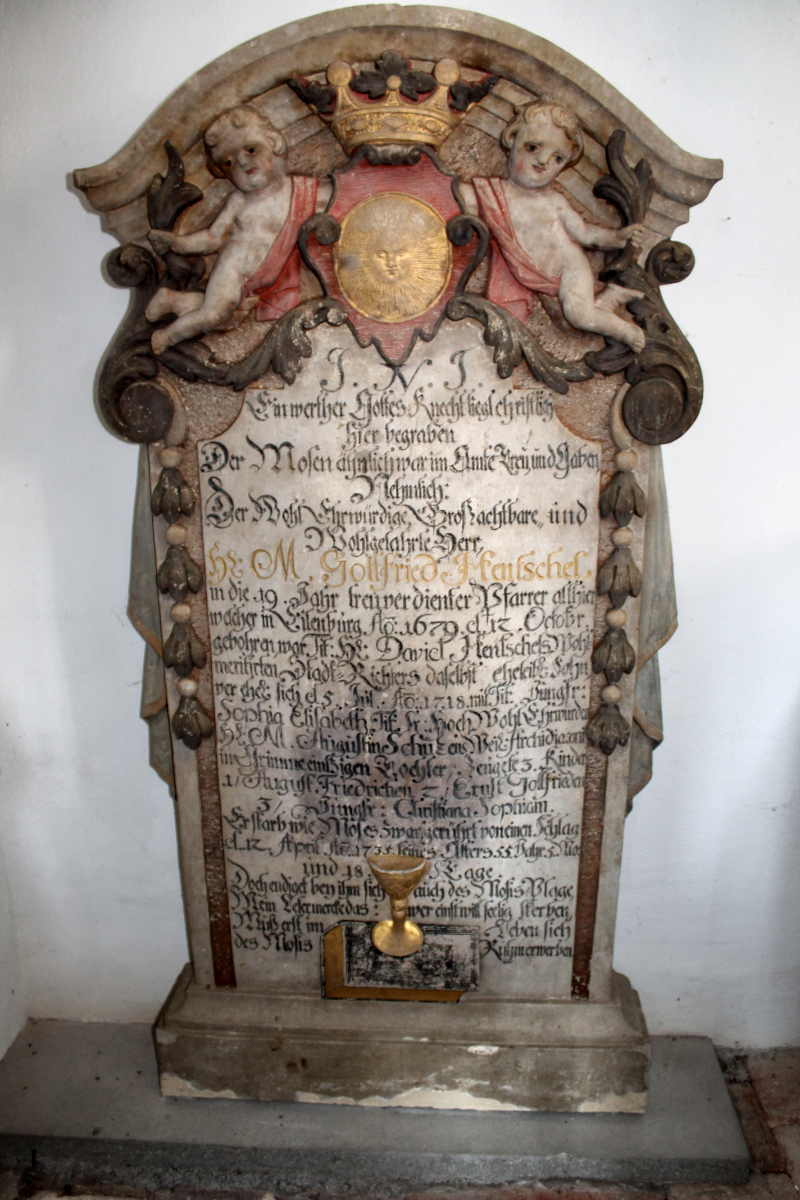 J. N. J.
Ein werther Gottes Knecht liegt christlich
hier begraben
Der Mosen ähnlich war im Amte Treu und Gaben
Nehmlich:
Der Wohl Ehrwürdige, Grosz achtbare, und
Wohlgelahrte Herr,
H: M. Gottfried Hentschel.
in die 19. Jahr treuverdienter Pfarrer allhier
welcher in Eilenburg Ao: 1679. d. 12. Octobr.
gebohren war. Tit: H: David Hentschels Wohl
meritirten Stadt Richters daselbst eheleibl: Sohn
ver ehel: sich d. 5. Jul. Ao: 1718. mit Tit: Jungfr:
Sophia Elisabeth Tit. Hoch Wohl Ehrwürden
H: M. Augustin Schulzens Weil: Archidiaconi
in Grimme eintzigen Tochter, Zeugete 3. Kinder
1/ August Friedrichen 2/ Ernst Gottfrieden
3/ Jungfr: Christiana Sophiam.
Er starb wie Moses zwar, gerührt von einen Schlag
d. 12. April. Ao: 1735. seines Alters 55. Jahr. 5. Mon:
und 18. Tage.
Doch endiget bey ihm sich auch des Mosis Plage
Mein Leser mercke das: wer einst will seelig sterben,
Muß erst im Leben sich
des Mosis Ruhm erwerben